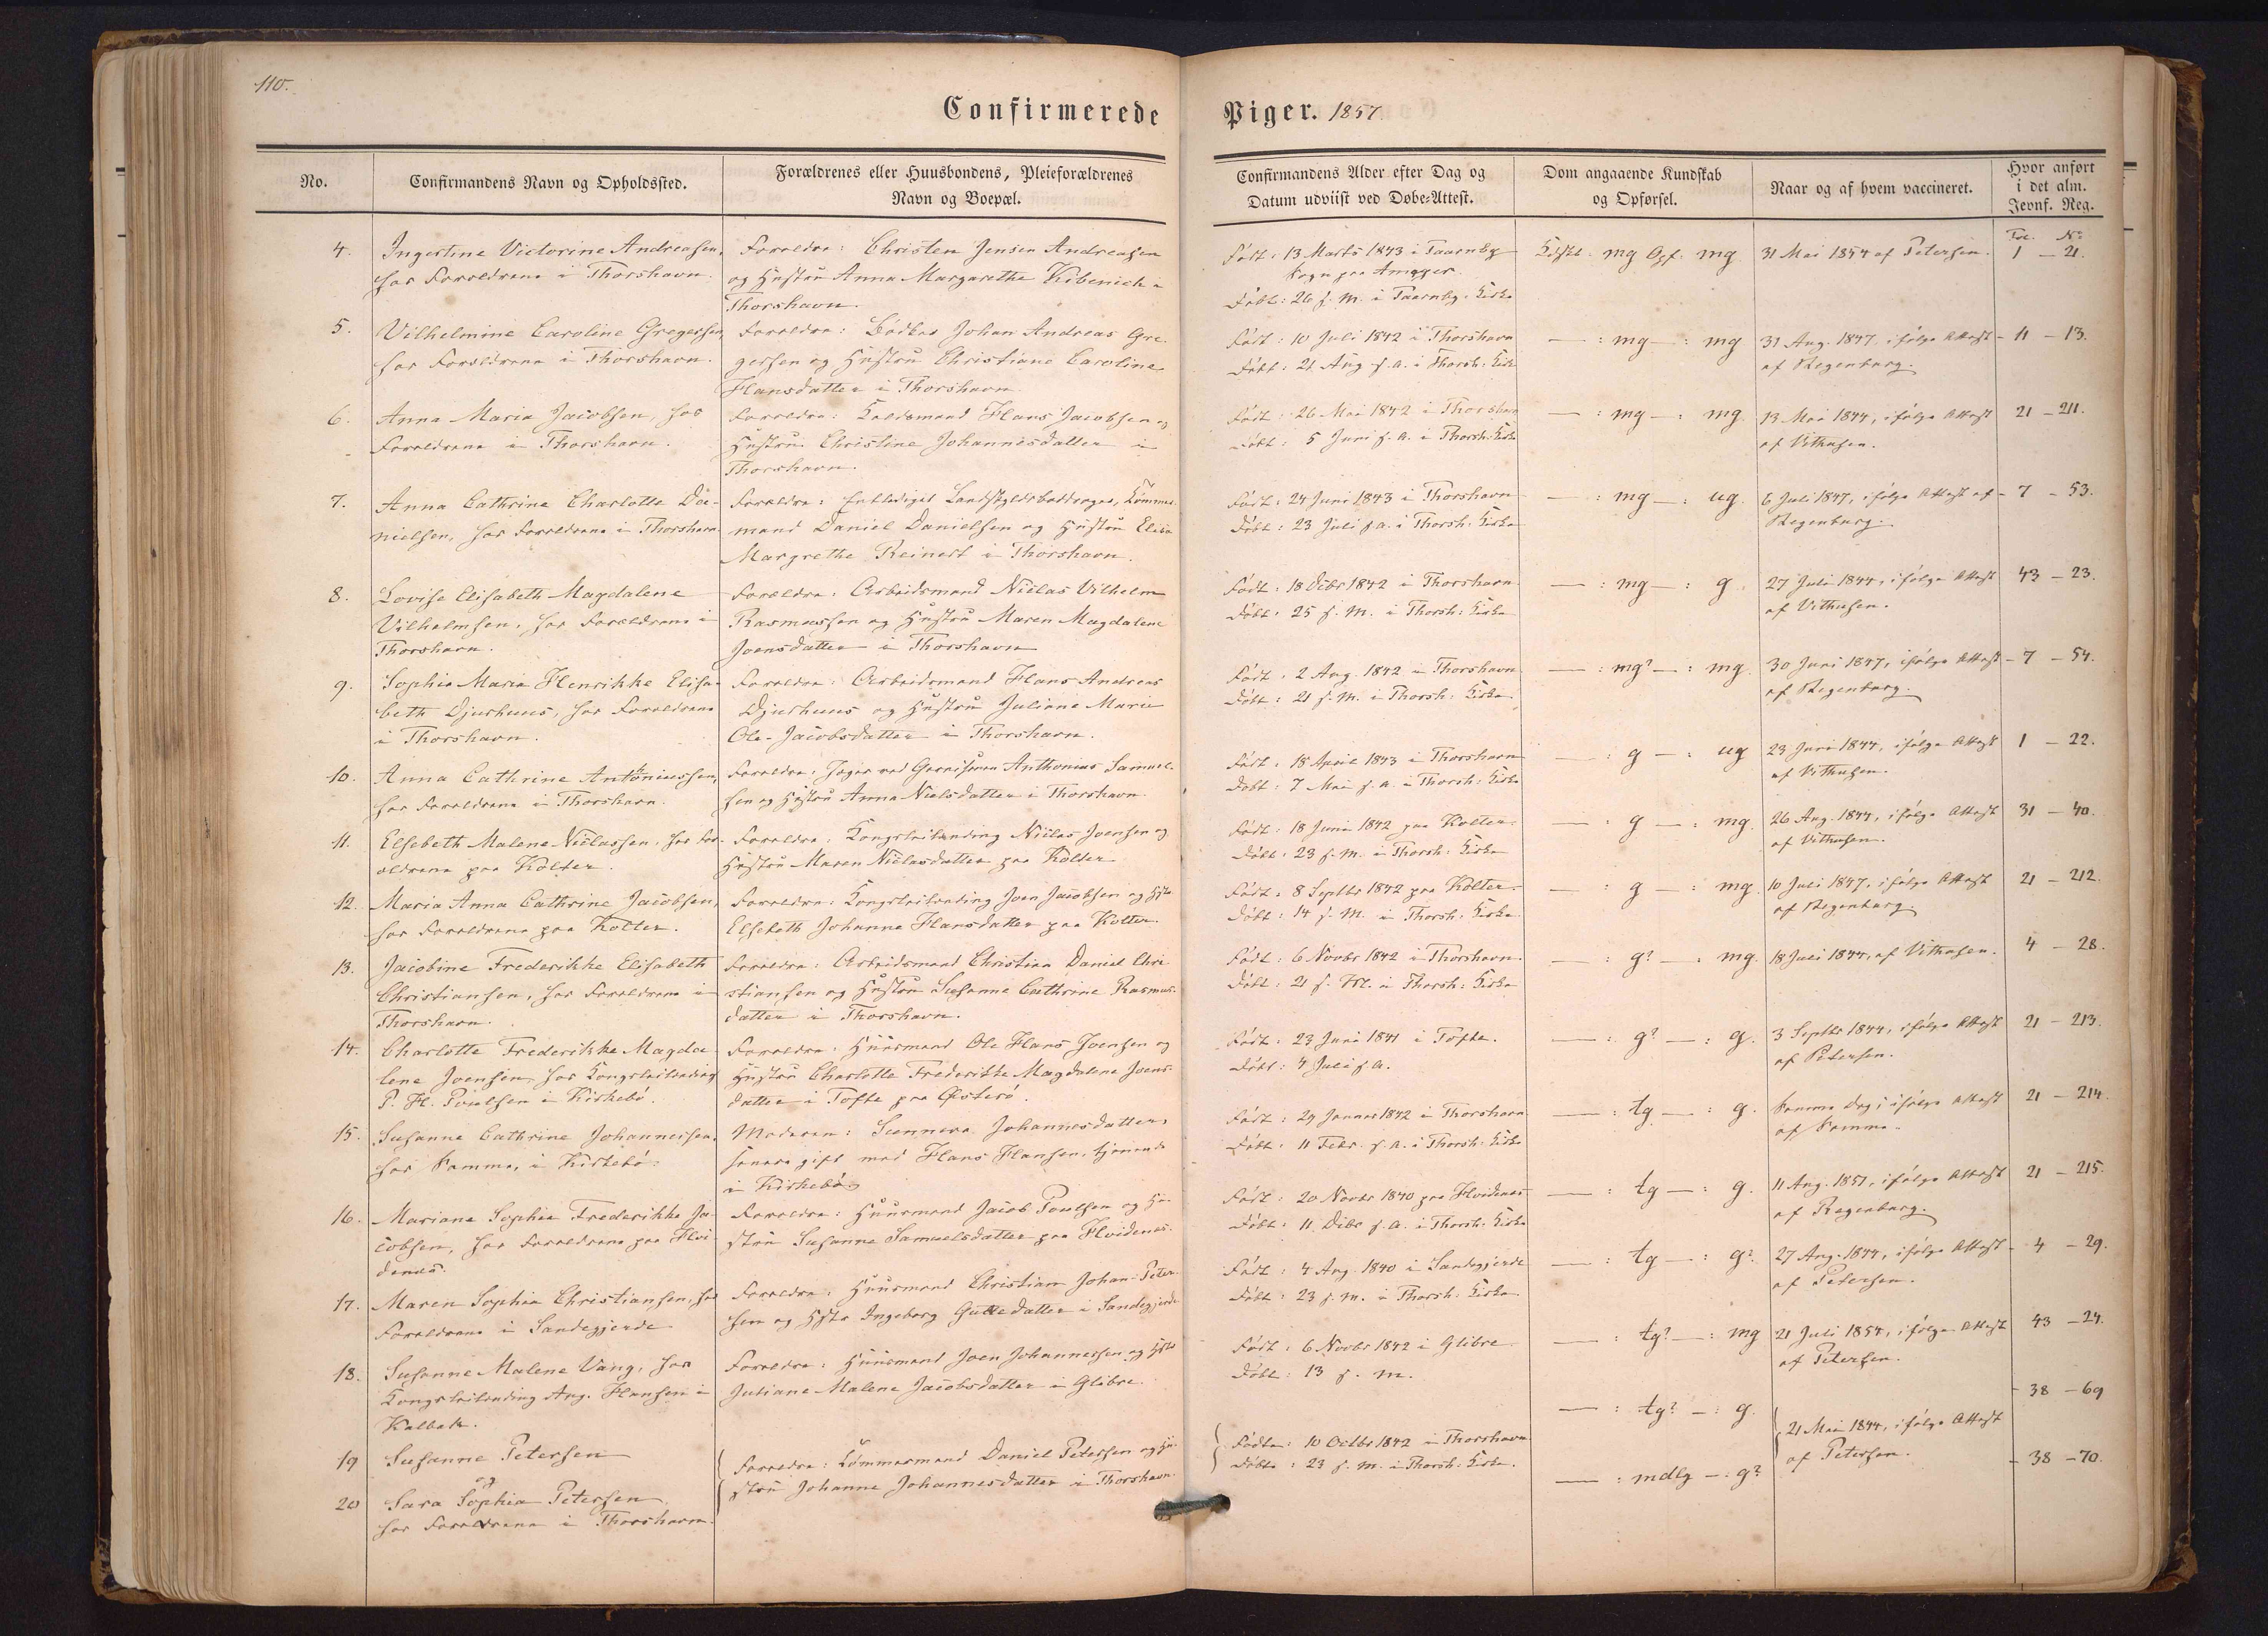 110.
Confirmerede
Piger. 1857
No.
Confirmandens Navn og Opholdssted.
Forældrenes eller Huusbondens, Pleieforældrenes
Navn og Boepæl.
Confirmandens Alder efter Dag og
Datum udviist ved Døbe-Attest.
Dom angaaende Kundskab
og Opførsel.
Naar og af hvem vaccineret.
Hvor anført
i det alm.
Jevnf. Reg.
Fol. No
4. Ingertine Victorine Andreasen,
hos Forældrene i Thorshavn.
Forældre: Christen Jensen Andreasen
og Hustru Anna Margarethe
Thorshavn.
Født: 13 Marts 1843 i Taarnby
Sogn paa Amager.
Døbt: 26 s. M. i Taarnby Kirke
Kdskb. mg Opf. mg
31 Mai 1854 af Petersen.
1 – 21.
5. Vilhelmine Caroline Gregersen,
hos Forældrene i Thorshavn.
Forældre: Bødker Johan Andreas Gre-
gersen og Hustru Christiane Caroline
Hansdatter i Thorshavn
Født: 10 Juli 1842 i Thorshavn
Døbt: 21 Aug s. A. i Thorsh: Kirke
— : mg — : mg
31 Aug. 1847, ifølge Attest
af Regenburg.
– 11 – 13.
6. Anna Maria Jacobsen, hos
Forældrene i Thorshavn.
Forældre: Hans Jacobsen og
Hustru Christine Johannesdatter i
Thorshavn.
Født: 26 Mai 1842 i Thorshavn
Døbt: 5 Juni s. A. i Thorsh: Kirke
— : mg — : mg.
13 Mai 1844, ifølge Attest
af Vithusen.
21 – 211.
7. Anna Cathrine Charlotte Da-
nielsen, hos Forældrene i Thorshavn
Forældre: Entlediget Tømmer-
mand Daniel Danielsen og Hustru
Margrethe Reinert i Thorshavn.
Født: 24 Juni 1843 i Thorshavn
Døbt: 23 Juli s. A. i Thorsh: Kirke
— : mg — : ug.
6 Juli 1847, ifølge Attest af
Regenburg.
– 7 – 53.
8. Lovise Elisabeth Magdalene
Vilhelmsen, hos Forældrene i
Thorshavn.
Forældre: Arbeidsmand Niclas Vilhelm
Rasmussen og Hustru Maren Magdalene
Joensdatter i Thorshavn
Født: 18 Decbr 1842 i Thorshavn
Døbt: 25 s. M. i Thorsh: Kirke
— : mg — : g.
27 Juli 1844, ifølge Attest
af Vithusen.
43 – 23.
9. Sophie Maria Henrikke Elisa-
beth Djurhuus, hos Forældrene
i Thorshavn.
Forældre: Arbeidsmand Hans Andreas
Djurhuus og Hustru Juliane Marie
Ole-Jacobsdatter i Thorshavn.
Født: 2 Aug. 1842 i Thorshavn
Døbt: 21 s. M. i Thorsh: Kirke
— : mg? — : mg.
30 Juni 1847, ifølge Attest
af Regenburg.
– 7 – 54.
10. Anna Cathrine Antoniussen,
hos Forældrene i Thorshavn.
Forældre: Jæger ved Garnisonen Anthonius Samuel-
sen og Hustru Anna Nielsdatter i Thorshavn
Født: 18 April 1843 i Thorshavn
Døbt: 7 Mai s. A. i Thorsh: Kirke
— : g — : ug
23 Juni 1844, ifølge Attest
af Vithusen.
1 – 22.
11. Elsebeth Malene Niclassen, hos For-
ældrene paa Kolter.
Forældre: Kongsleilending Niclas Joensen og
Hustru Maren Niclasdatter paa Kolter
Født: 18 Juni 1842 paa Kolter.
Døbt: 23 s. M. i Thorsh: Kirke
— : g — : mg.
26 Aug. 1844, ifølge Attest
af Vithusen.
31 – 40.
12. Maria Anna Cathrine Jacobsen,
hos Forældrene paa Kolter.
Forældre: Kongsleilending Joen Jacobsen og
Elsebeth Johanne Hansdatter paa Kolter.
Født: 8 Septbr 1842 paa Kolter.
Døbt: 14 s. M. i Thorsh: Kirke
— : g — : mg.
10 Juli 1847, ifølge Attest
af Regenburg.
21 – 212.
13. Jacobine Frederikke Elisabeth
Christiansen, hos Forældrene i
Thorshavn.
Forældre: Arbeidsmand Christian Daniel Chri-
stiansen og Hustru Susanne Cathrine Rasmus-
datter i Thorshavn.
Født: 6 Novbr 1842 i Thorshavn.
Døbt: 21 s. M. i Thorsh: Kirke
— : g? — : mg.
18 Juli 1844, af Vithusen.
4 – 28.
14. Charlotte Frederikke Magda-
lene Joensen, hos Kongsleilending
P. H. Poulsen i Kirkebö.
Forældre: Huusmand Ole Hans Joensen og
Hustru Charlotte Frederikke Magdalene Joens-
datter i Tofte paa Østerö.
Født: 23 Juni 1841 i Tofte.
Døbt: 4 Juli s. A.
— : g? — : g.
3 Septbr 1844, ifølge Attest
af Petersen.
21 – 213.
15. Susanne Cathrine Johannesen,
hos Samme, i Kirkebö
Moderen: Sunneva Johannesdatter,
senere gift med Hans Hansen, tjenende
i Kirkebö
Født: 29 Januar 1842 i Thorshavn
Døbt: 11 Febr. s. A. i Thorsh: Kirke
— : tg — : g.
Samme Dag, ifølge Attest
af Samme.
21 – 214.
16. Mariane Sophie Frederikke Ja-
cobsen, hos Forældrene paa Hvi-
denæs.
Forældre: Huusmand Jacob Poulsen og Hu-
stru Susanne Samuelsdatter paa Hvidenæs.
Født: 20 Novbr 1840 paa Hvidenæs
Døbt: 11 Decbr s. A. i Thorsh: Kirke
— : tg — : g.
11 Aug. 1851, ifølge Attest
af Regenburg.
21 – 215.
17. Maren Sophie Christiansen, hos
Forældrene i Sandegjerde
Forældre: Huusmand Christian Johan Peter-
sen og Hstr Ingeborg Guttedatter i Sandegjerde
Født: 4 Aug. 1840 i Sandegjerde
Døbt: 23 s. M. i Thorsh: Kirke
— : tg — : g?
27 Aug. 1844, ifølge Attest
af Petersen.
– 4 – 29.
18. Susanne Malene Vang, hos
Kongsleilending Aug. Hansen i
Kalbak.
Forældre: Huusmand Joen Johannessen og Hstr
Juliane Malene Jacobsdatter i Glibre.
Født: 6 Novbr 1842 i Glibre
Døbt: 13 s. M.
— : tg? — : mg
21 Juli 1854, ifølge Attest
af Petersen.
43 – 24.
19 Susanne Petersen
og
20 Sara Sophia Petersen
hos Forældrene i Thorshavn.
Forældre: Tømmermand Daniel Petersen og Hu-
stru Johanne Johannesdatter i Thorshavn.
Fødte: 10 Octbr 1842 i Thorshavn
Døbte: 23 s. M. i Thorsh: Kirke.
— : tg? — : g.
— : mdlg — : g?
21 Mai 1844, ifølge Attest
af Petersen.
– 38 – 69
– 38 – 70.